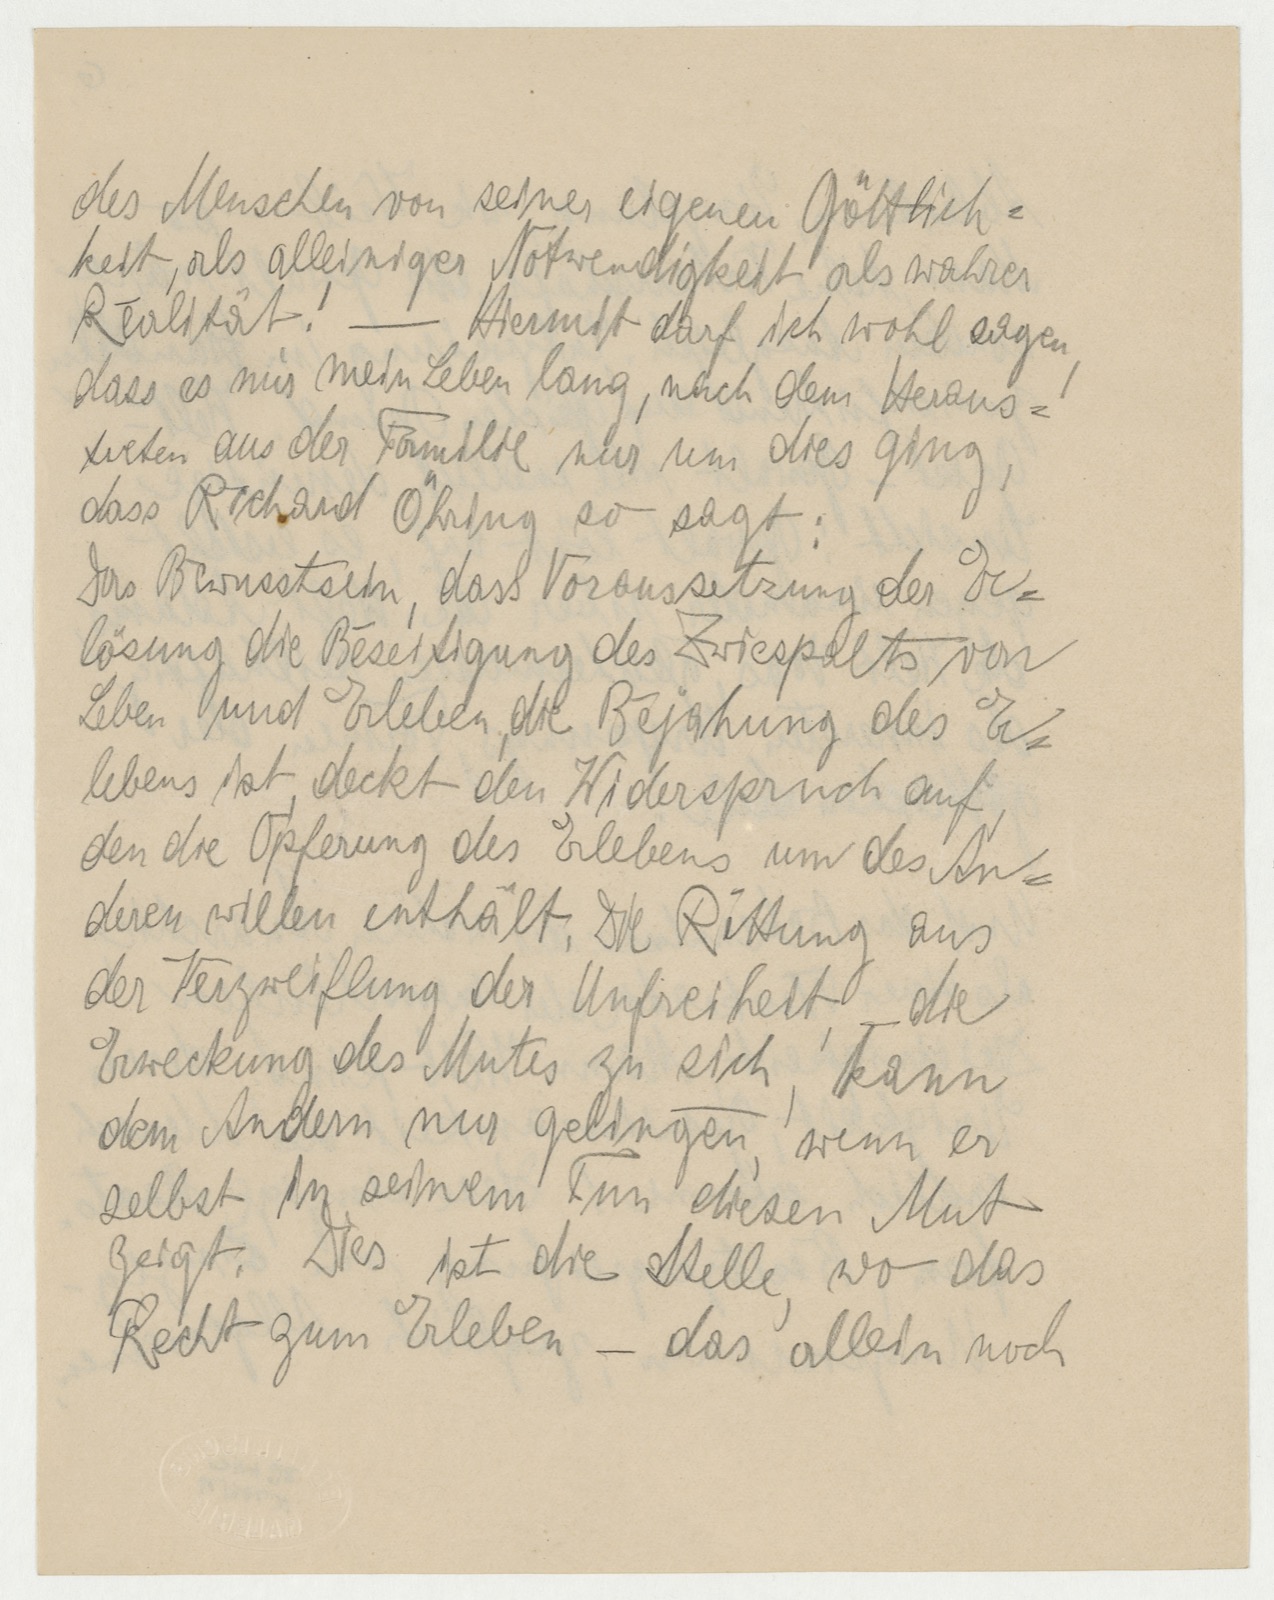 des Menschen von seiner eigenen Göttlich=
keit, als alleiniger Notwendigkeit als wahrer
Realität! — Hiermit darf ich wohl sagen,
dass es mir mein Leben lang, nach dem Heraus=
treten aus der Familie nur um dies ging,
dass Richard Öhring so sagt:
Das Bewusstsein, dass Voraussetzung der Er=
lösung die Beseitigung des Zwiespalts von
Leben und Erleben, die Bejahung des Er=
lebens ist, deckt den Widerspruch auf,
den die Opferung des Erlebens um des An=
deren willen enthält. Die Rettung aus
der Verzweiflung der Unfreiheit, die
Erweckung des Mutes zu sich, kann
dem Andern nur gelingen, wenn er
selbst in seinem Tun diesen Mut
zeigt. Dies ist die Stelle, wo das
Recht zum Erleben – das allein noch